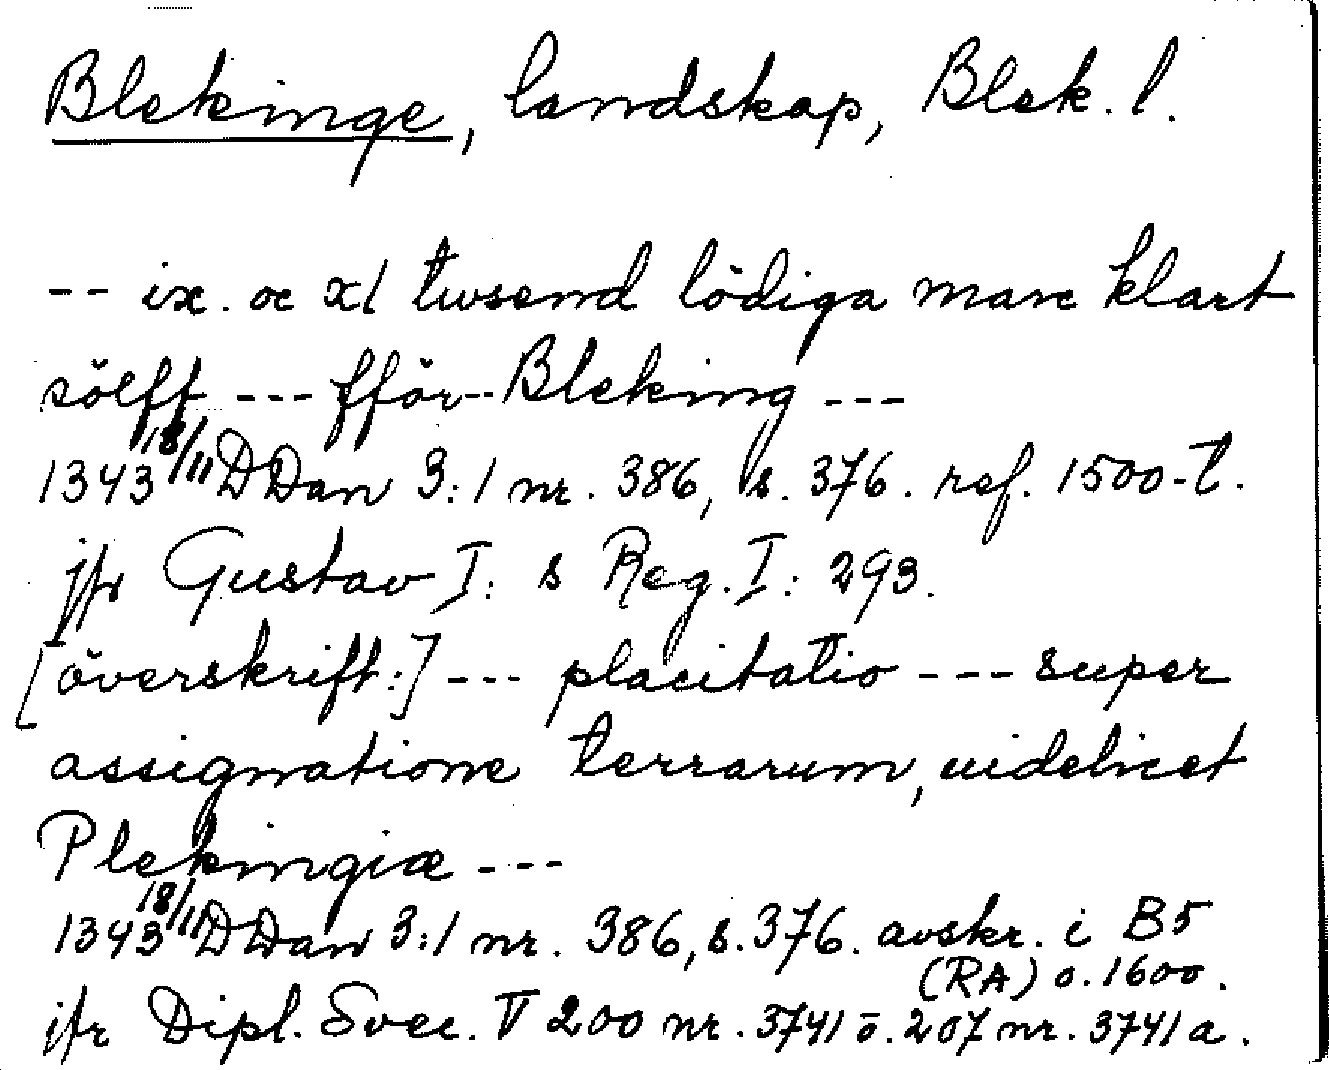 Blekinge, landskap, Blek. l.
-- ix. oc xl twsend lödiga marc klart
sölfft --- fför Bleking ---
1343 18/11 DDan 3:1 nr. 386, s. 376. ref. 1500-t.
jfr Gustav I:s Reg. I: 293.
[överskrift:] --- placitatio --- super
assignatione terrarum, uidelicet
Plekingiæ ---
1343 18/11 DDan 3:1 nr. 386, s. 376. avskr. i B5
(RA) o. 1600.
jfr Dipl. Svec. V 200 nr. 3741 o. 207 nr. 3741 a.